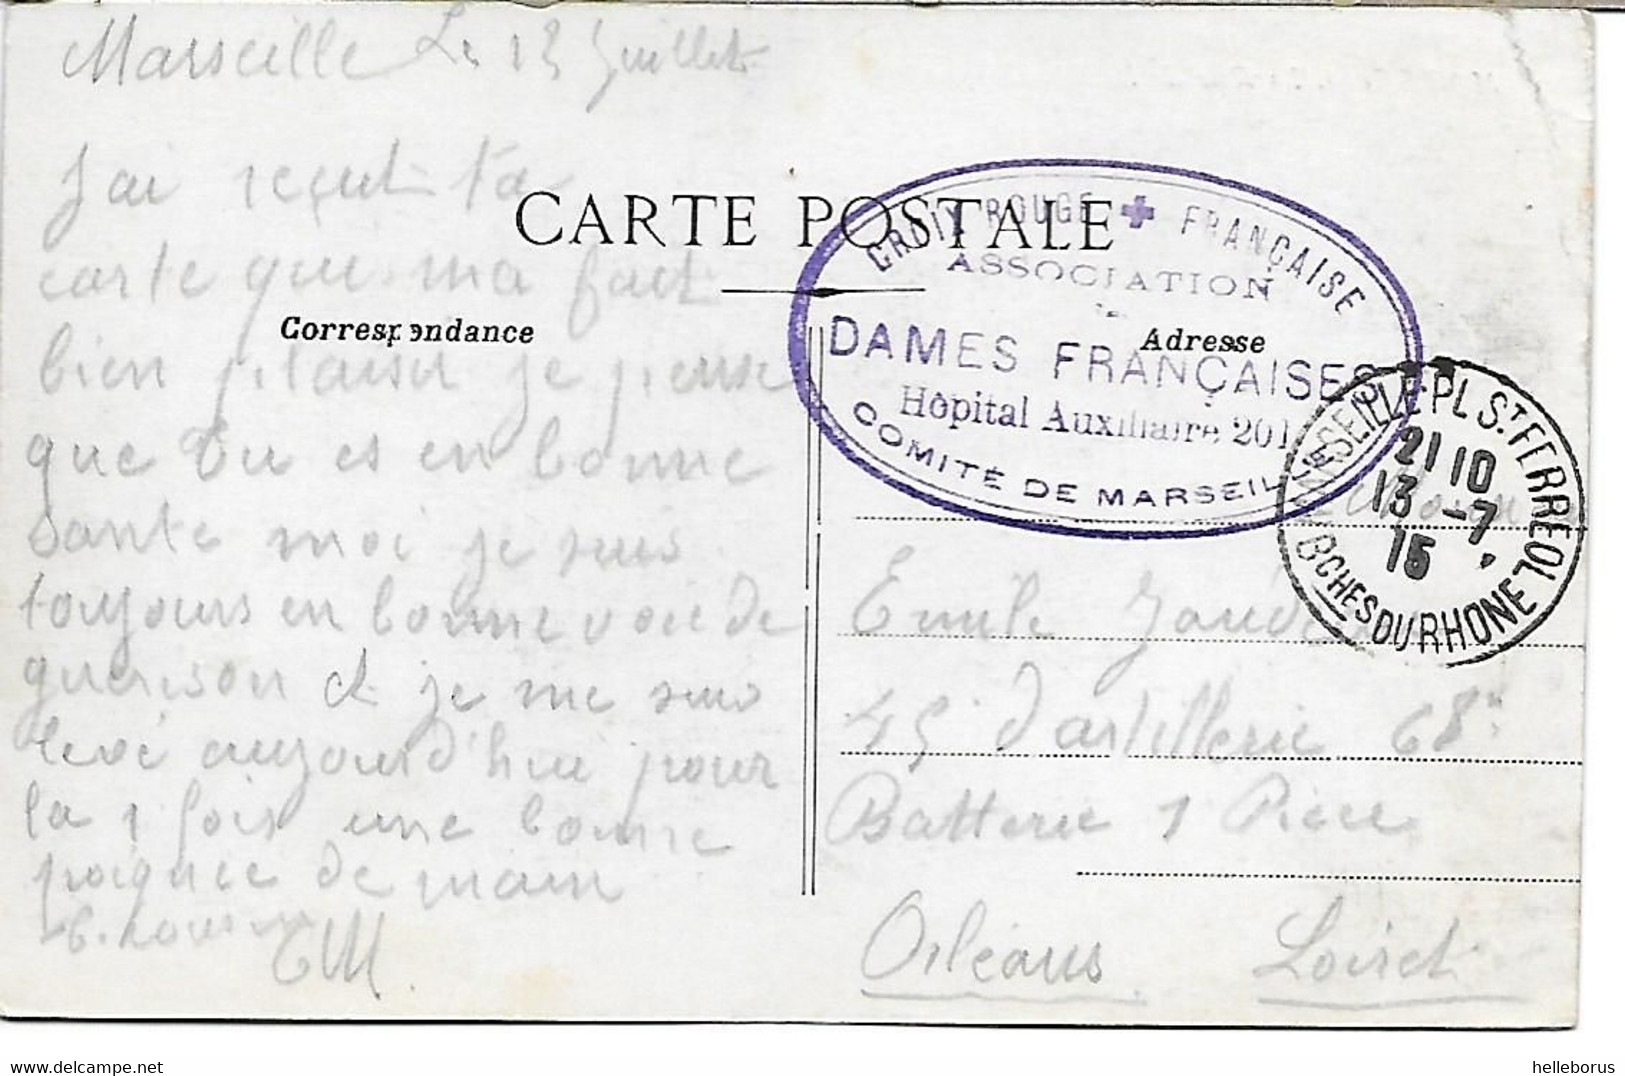 Marseille Le 13 Juillet
J'ai reçut ta
carte que ma fait
bien plaisir je pense
que tu es en bonne
sante moi je suis
toujours en bonne voie de
guerison et je me suis
levé aujourd'hui pour
la 1 fois une bonne
poignée de main
CARTE POSTALE
Correspondance
Adresse
CROIX ROUGE + FRANÇAISE
ASSOCIATION
DAMES FRANÇAISES
Hôpital Auxiliaire 201
COMITÉ DE MARSEILLE
MARSEILLE-PL ST FERREOL
21 10
13 -7
15
BCHES DU RHONE
Emile
45 d'artillerie 68e
Batterie 1 Pièce
Orléans Loiret
delcampe.net
helleborus